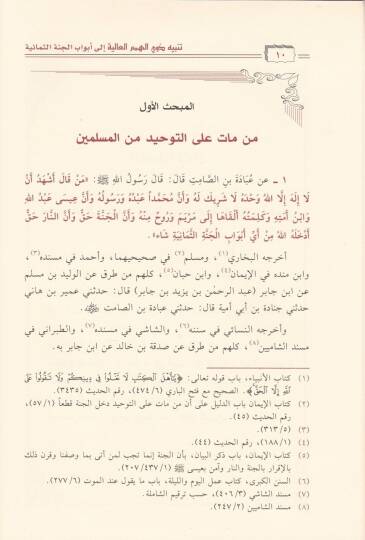 تنبيه ذوي الهمم العالية إلى أبواب الجنة الثمانية
١٠
المبحث الأول
من مات على التوحيد من المسلمين
١ ـ عن عُبَادَةَ بنِ الصَّامِتِ قَالَ: قَالَ رَسُولُ اللهِ ﷺ: «مَنْ قَالَ أَشْهَدُ أَنْ
لَا إِلَهَ إِلَّا اللهُ وَحْدَهُ لَا شَرِيكَ لَهُ وَأَنَّ مُحَمَّداً عَبْدُهُ وَرَسُولُهُ وَأَنَّ عِيسَى عَبْدُ اللهِ
وَابْنُ أَمَتِهِ وَكَلِمَتُهُ أَلْقَاهَا إِلَى مَرْيَمَ وَرُوحٌ مِنْهُ وَأَنَّ الْجَنَّةَ حَقٌّ وَأَنَّ النَّارَ حَقٌّ
أَدْخَلَهُ اللهُ مِنْ أَيِّ أَبْوَابِ الْجَنَّةِ الثَّمَانِيَةِ شَاءَ».
أخرجه البخاري(١)، ومسلم(٢) في صحيحيهما، وأحمد في مسنده(٣)،
وابن منده في الإيمان(٤)، وابن حبان(٥)، كلهم من طرق عن الوليد بن مسلم
عن ابن جابر (عبد الرحمٰن بن يزيد بن جابر) قال: حدثني عمير بن هاني
حدثني جنادة بن أبي أمية قال: حدثني عبادة بن الصامت ﷺ.
وأخرجه النسائي في سننه(٦)، والشاشي في مسنده(٧)، والطبراني في
مسند الشاميين(٨)، كلهم من طرق عن صدقة بن خالد عن ابن جابر به.
(١) كتاب الأنبياء، باب قوله تعالى: ﴿يَا أَهْلَ الْكِتَابِ لَا تَغْلُوا فِي دِينِكُمْ وَلَا تَقُولُوا عَلَى
اللَّهِ إِلَّا الْحَقَّ﴾. الصحيح مع فتح الباري (٤٧٤/٦)، رقم الحديث (٣٤٣٥).
(٢) كتاب الإيمان باب الدليل على أن من مات على التوحيد دخل الجنة قطعاً (٥٧/١)،
رقم الحديث (٤٥).
(٣) (٣١٣/٥).
(٤) (١٨٨/١)، رقم الحديث (٤٤).
(٥) كتاب الإيمان، باب ذكر البيان، بأن الجنة إنما تجب لمن أتى بما وصفنا وقرن ذلك
بالإقرار بالجنة والنار وآمن بعيسى ﷺ (٢٠٧/٤٣٧/١).
(٦) السنن الكبرى، كتاب عمل اليوم والليلة، باب ما يقول عند الموت (٢٧٧/٦).
(٧) مسند الشاشي (٤٠٦/٣)، حسب ترقيم الشاملة.
(٨) مسند الشاميين (٢٤٧/٢).